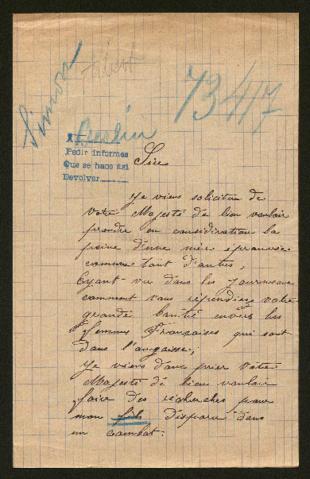 Simon
Albert
73417
Berlin
Pedir informes
Que se hace así
Devolver
Sire
Je viens soliciter de
votre Majesté de bien vouloir
prendre en considération la
peine d'une mère éprouvée
comme tant d'autres,
Eyant vu dans les journeaux
comment vous répendiez votre
grande bonté envers les
femmes Françaises qui sont
dans l'angoisse,
Je viens donc prier votre
Majesté de bien vouloir
faire des recherches pour
mon fils disparu dans
un combat: